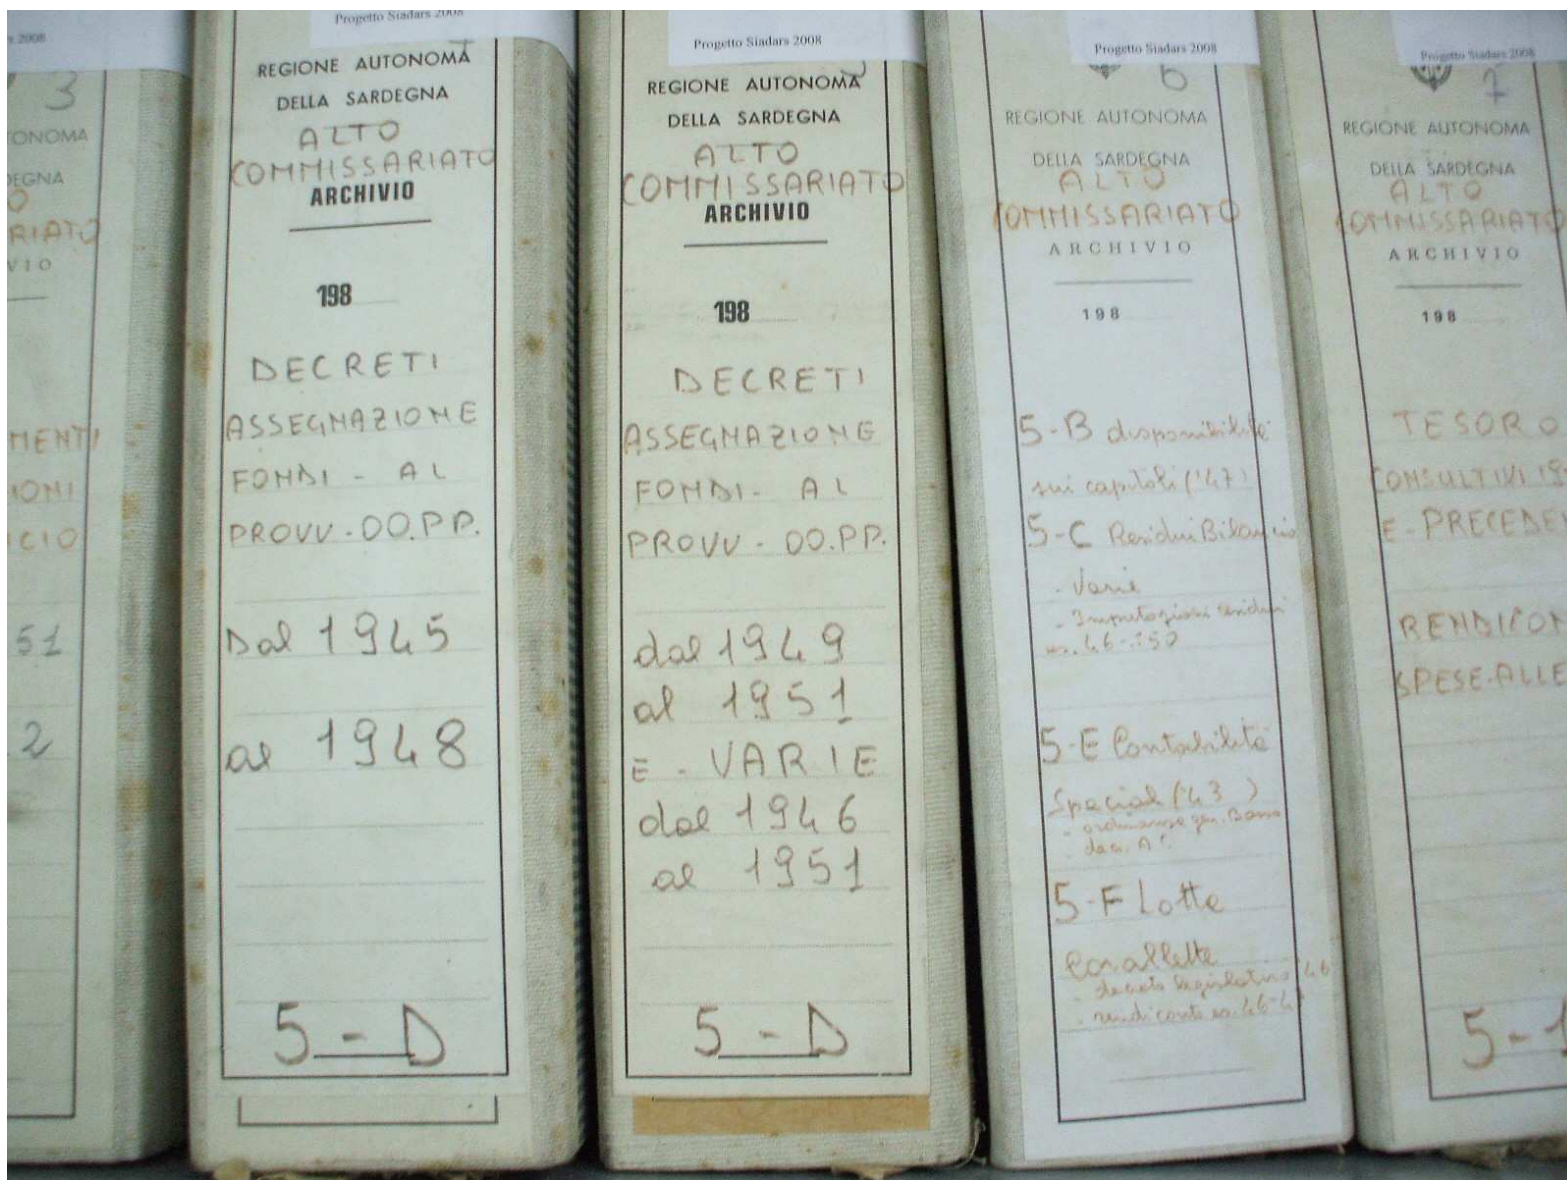 2008
3
TONOMA
DEGNA
O
RIATO
VIO
MENTI
IONI
ICIO
51
2
Progetto Siadars 2008
REGIONE AUTONOMA
DELLA SARDEGNA
ALTO
COMMISSARIATO
ARCHIVIO
198
DECRETI
ASSEGNAZIONE
FONDI - AL
PROVV - OO.PP.
Dal 1945
al 1948
5-D
Progetto Siadars 2008
5
REGIONE AUTONOMA
DELLA SARDEGNA
ALTO
COMMISSARIATO
ARCHIVIO
198
DECRETI
ASSEGNAZIONE
FONDI - AL
PROVV - OO.PP.
dal 1949
al 1951
E - VARIE
dal 1946
al 1951
5-D
Progetto Siadars 2008
6
REGIONE AUTONOMA
DELLA SARDEGNA
ALTO
COMMISSARIATO
ARCHIVIO
198
5-B disponibilità
sui capitoli ('47)
5-C Residui Bilancio
- Varie
- Imputazioni residui
es. 46-50
5-E Contabilità
Speciale ('43)
- ordinanze gen. Basso
5-F Lotte
Cavallette
- decreto legislativo '46
- rendiconto es. 46-4
Progetto Siadars 2008
7
REGIONE AUTONOMA
DELLA SARDEGNA
ALTO
COMMISSARIATO
ARCHIVIO
198
TESORO
CONSULTIVI 19
E - PRECEDE
RENDICON
SPESE-ALLE
5-1